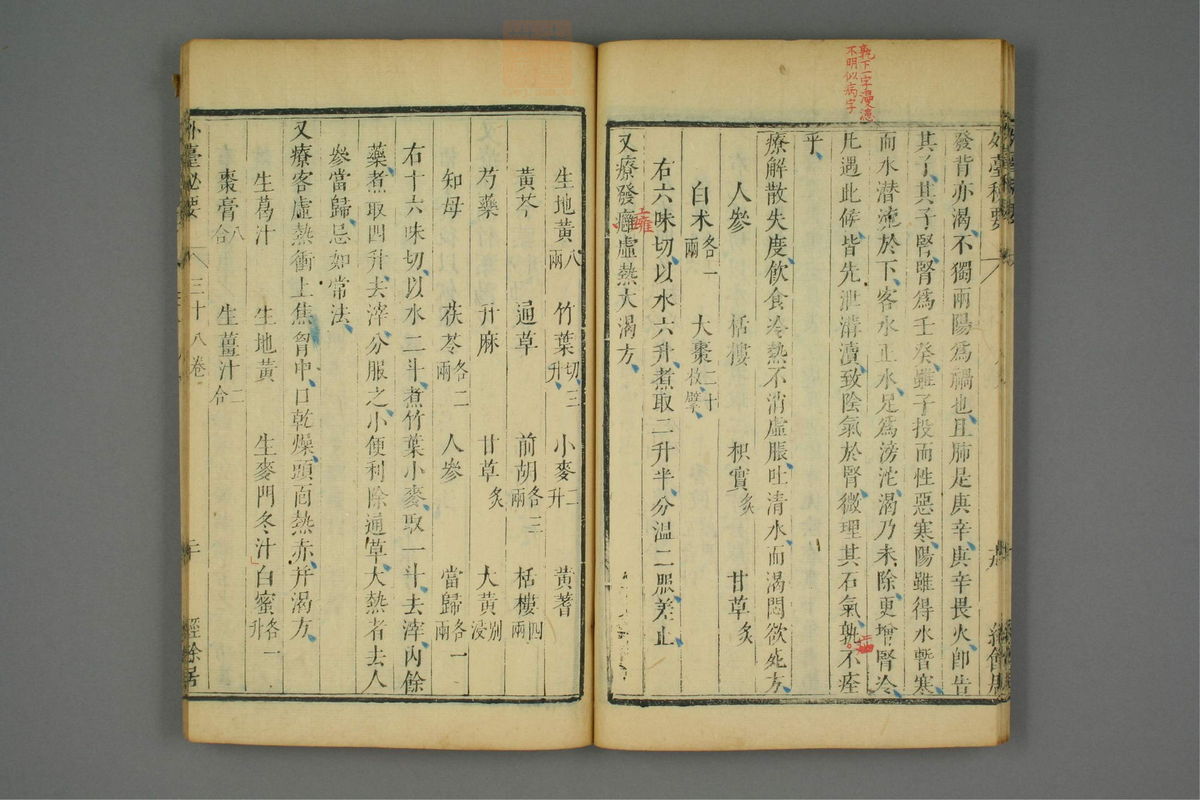 孰下一字漫漶
不明似病字
發背亦渴不獨兩陽爲禍也且肺是庚辛庚辛畏火卽告
其子其子腎腎爲壬癸雖子投而性惡寒陽雖得水暫寒
而水潛流於下客水正水足爲滂沱渴乃未除更增腎冷
凡遇此候皆先泄溝瀆致陰氣於腎微理其石氣孰不痊
乎
療解散失度飲食冷熱不消虛脹吐清水而渴悶欲死方
人參 栝樓 枳實炙 甘草炙
白术各一兩 大棗二十枚擘
右六味切以水六升煮取二升半分溫二服差止
又療發癰虛熱大渴方
生地黃八兩 竹葉切三升 小麥二升 黃蓍
黃芩 通草 前胡各三兩 栝樓四兩
芍藥 升麻 甘草炙 大黃別浸
知母 茯苓各二兩 人參 當歸各一兩
右十六味切以水二斗煮竹葉小麥取一斗去滓內餘
藥煮取四升去滓分服之小便利除通草大熱者去人
參當歸忌如常法
又療客虛熱衝上焦胷中口乾燥頭面熱赤幷渴方
生葛汁 生地黃 生麥門冬汁 白蜜各一升
棗膏八合 生薑汁二合
外臺秘要 三十八卷 二 經餘居